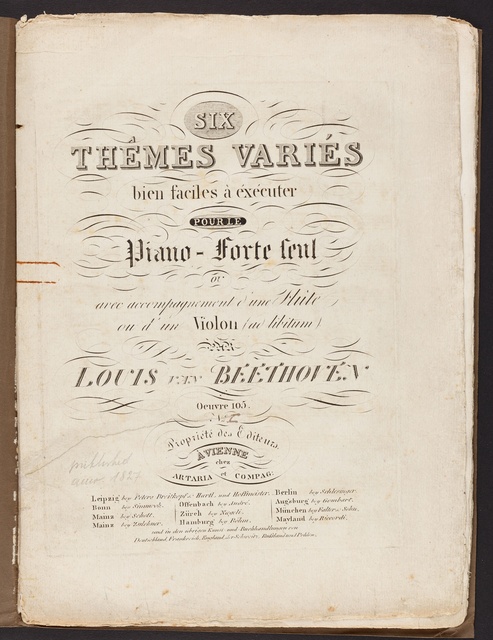 SIX
THÊMES VARIÉS
bien faciles à éxécuter
POUR LE
Piano-Forte seul
ou
avec accompagnement d'une Flûte
ou d'un Violon (ad libitum)
PAR
LOUIS VAN BEETHOVEN
Oeuvre 105.
Nº I
Propriété des Editeurs.
À VIENNE
chez
ARTARIA et COMPAG:
Leipzig bey Peters Breitkopf & Härtl, und Hoffmeister. Berlin bey Schlesinger.
Bonn bey Simrock. Offenbach bey André. Augsburg bey Gombart.
Mainz bey Schott. Zürch bey Nägeli. München bey Falter & Sohn.
Mainz bey Zulehner. Hamburg bey Böhm. Mayland bey Ricordi.
und in den übrigen Kunst und Buchhandlungen von
Deutschland, Frankreich, England, der Schweiz, Russland und Pohlen.
1827